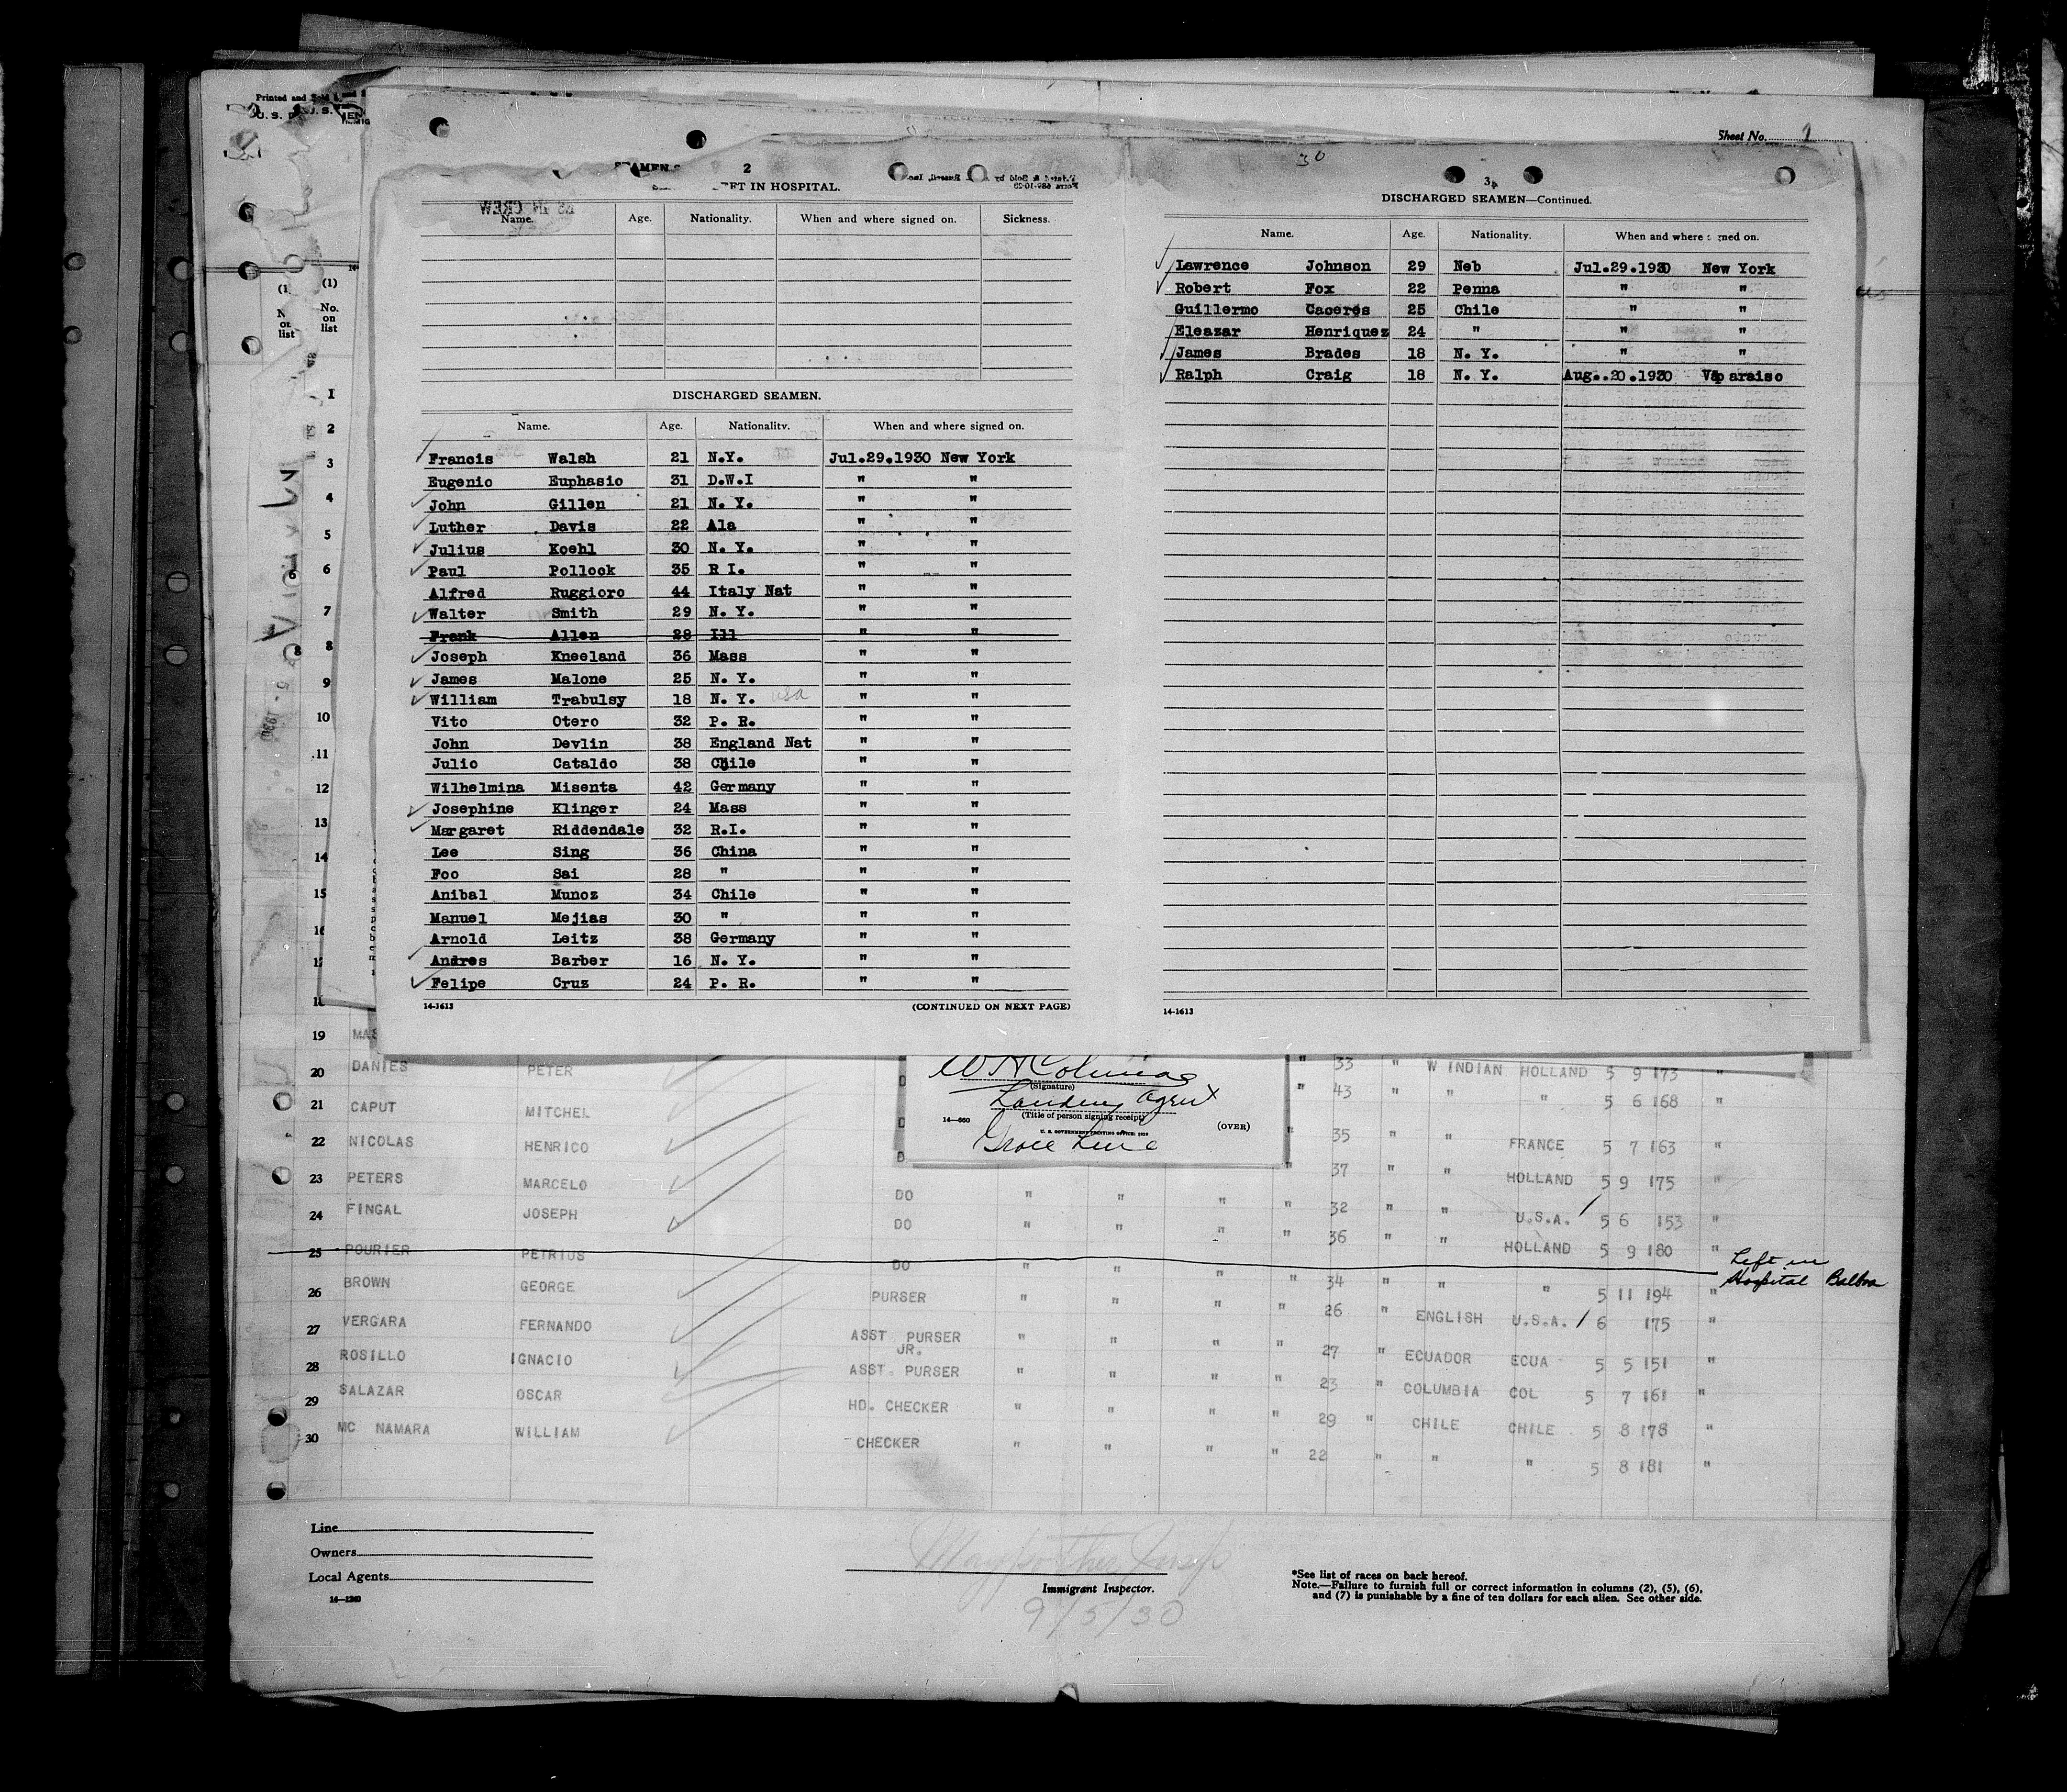 Printed and Sold
U. S.
Sheet No. 1
2
LEFT IN HOSPITAL.
Name. Age. Nationality. When and where signed on. Sickness.
DISCHARGED SEAMEN.
Name. Age. Nationality. When and where signed on.
Francis Walsh 21 N.Y. Jul.29.1930 New York
Eugenio Euphasio 31 D.W.I " "
John Gillen 21 N. Y. " "
Luther Davis 22 Ala " "
Julius Koehl 30 N. Y. " "
Paul Pollock 35 R I. " "
Alfred Ruggioro 44 Italy Nat " "
Walter Smith 29 N. Y. " "
Frank Allen 28 Ill " "
Joseph Kneeland 36 Mass " "
James Malone 25 N. Y. " "
William Trabulsy 18 N. Y. USA " "
Vito Otero 32 P. R. " "
John Devlin 38 England Nat " "
Julio Cataldo 38 Chile " "
Wilhelmina Misenta 42 Germany " "
Josephine Klinger 24 Mass " "
Margaret Riddendale 32 R.I. " "
Lee Sing 36 China " "
Foo Sai 28 " " "
Anibal Munoz 34 Chile " "
Manuel Mejias 30 " " "
Arnold Leitz 38 Germany " "
Andres Barber 16 N. Y. " "
Felipe Cruz 24 P. R. " "
14-1613 (CONTINUED ON NEXT PAGE)
30
3
DISCHARGED SEAMEN—Continued.
Name. Age. Nationality. When and where signed on.
Lawrence Johnson 29 Neb Jul.29.1930 New York
Robert Fox 22 Penna " "
Guillermo Caceres 25 Chile " "
Eleazar Henriquez 24 " " "
James Brades 18 N. Y. " "
Ralph Craig 18 N. Y. Aug..20.1930 Vap araiso
14-1613
(1)
No.
on
list
1
2
3
4
5
6
7
8
9
10
11
12
13
14
15
16
19
(Signature)
Landing Agent
(Title of person signing receipt)
14—660 (OVER)
U. S. GOVERNMENT PRINTING OFFICE
Grace Line
20 DANIES PETER " 33 " W INDIAN HOLLAND 5 9 173 "
21 CAPUT MITCHEL " 43 " " " 5 6 168 "
22 NICOLAS HENRICO " 35 " " FRANCE 5 7 163 "
23 PETERS MARCELO DO " " " " 37 " " HOLLAND 5 9 175 "
24 FINGAL JOSEPH DO " " " " 32 " " U.S.A. 5 6 153 "
25 POURIER PETRIUS DO " " " " 36 " " HOLLAND 5 9 180 " Left in Hospital Balboa
26 BROWN GEORGE PURSER " " " " 34 " " " 5 11 194 "
27 VERGARA FERNANDO ASST PURSER " " " " 26 " ENGLISH U.S.A. 6 175 "
28 ROSILLO IGNACIO JR. ASST. PURSER " " " " 27 " ECUADOR ECUA 5 5 151 "
29 SALAZAR OSCAR HD. CHECKER " " " " 23 " COLUMBIA COL 5 7 161 "
30 MC NAMARA WILLIAM CHECKER " " " " 29 " CHILE CHILE 5 8 178 "
22 " " " 5 8 181 "
Line
Owners
Local Agents
14—1240
Immigrant Inspector.
9/5/30
*See list of races on back hereof.
Note.—Failure to furnish full or correct information in columns (2), (5), (6),
and (7) is punishable by a fine of ten dollars for each alien. See other side.